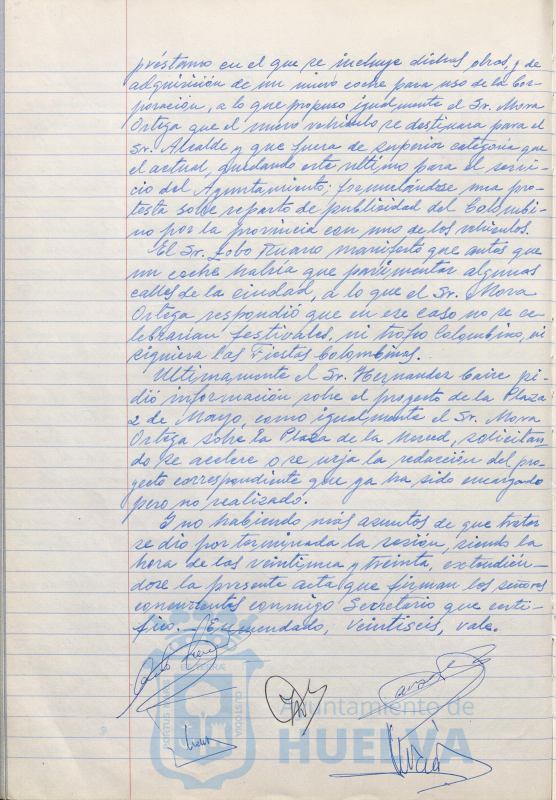 préstamo en el que se incluye dichas obras, y de
adquisición de un nuevo coche para uso de la Cor-
poración, a lo que propuso igualmente el Sr. Mora
Ortega que el nuevo vehículo se destinara para el
Sr. Alcalde y que fuera de superior categoría que
el actual, quedando este ultimo para el servi-
cio del Ayuntamiento; formulándose una pro-
testa sobre reparto de publicidad del Colombi-
no por la provincia con uno de los vehículos.
El Sr. Lobo Ruano manifestó que antes que
un coche habría que pavimentar algunas
calles de la ciudad, a lo que el Sr. Mora
Ortega respondió que en ese caso no se ce-
lebrarían festivales, ni trofeo Colombino, ni
siquiera las Fiestas Colombinas.
Ultimamente el Sr. Hernandez Caire pi-
dió información sobre el proyecto de la Plaza
2 de Mayo, como igualmente el Sr. Mora
Ortega sobre la Plaza de la Merced, solicitan-
do se acelere o se urja la redacción del pro-
yecto correspondiente que ya ha sido encargado
pero no realizado.
Y no habiendo más asuntos de que tratar
se dió por terminada la sesión, siendo la
hora de las veintiuna y treinta, extendién-
dose la presente acta que firman los señores
concurrentes conmigo Secretario que certi-
fico. - Enmendado, veintiseis, vale.
Ayuntamiento de
HUELVA